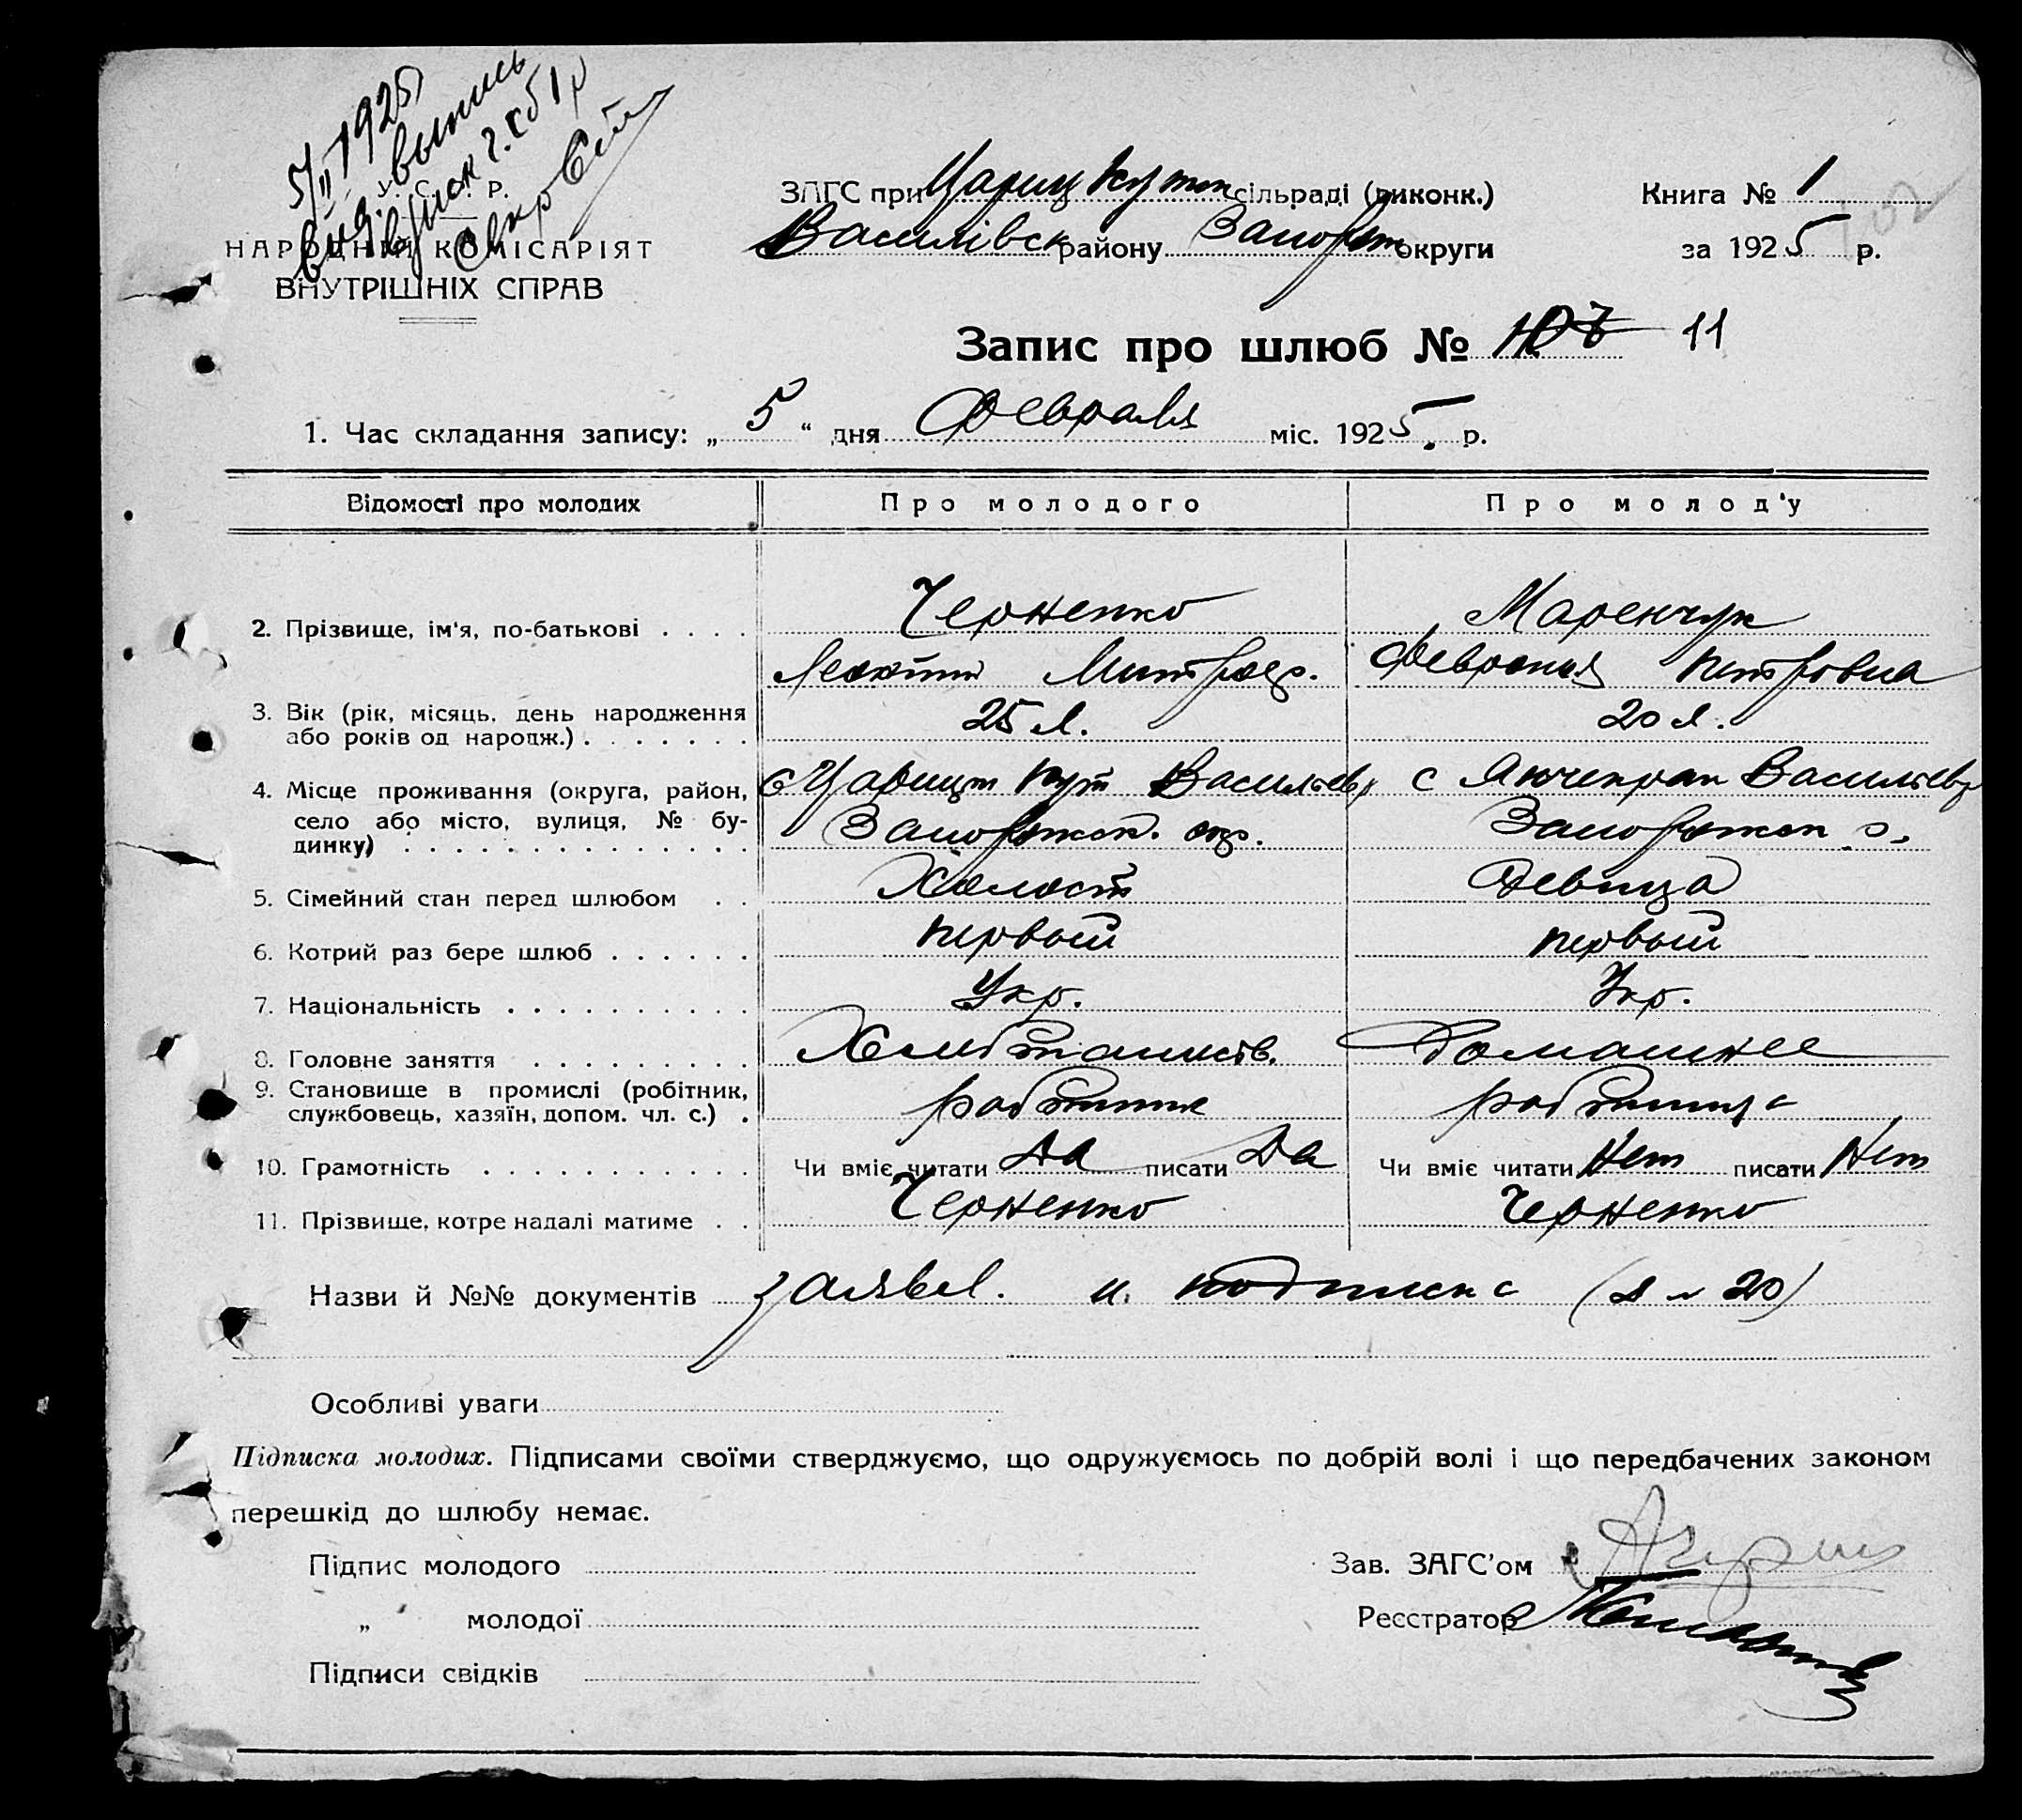 5/II 1925
выпись
У. С. Р. Р.
НАРОДНІЙ КОМІСАРІЯТ
ВНУТРІШНІХ СПРАВ
ЗАГС при Цариц Кутск сільраді (виконк.)
Василівск району Запорож округи
Книга № 1
за 1925 р.
102
Запис про шлюб № 11
1. Час складання запису: „ 5 “ дня Февраля міс. 1925. р.
Відомості про молодих Про молодого Про молод'у
2. Прізвище, ім'я, по-батькові Черненко Маренчук
Леонтий Митроф. Феврония Петровна
3. Вік (рік, місяць, день народження або років од народж.) 25 л. 20 л.
4. Місце проживання (округа, район, село або місто, вулиця, № будинку) с Царицын Кут Васильев с Янчекрак Васильев
Запорожск. окр. Запорожск о.
5. Сімейний стан перед шлюбом Холост Девица
6. Котрий раз бере шлюб первый первый
7. Національність Укр. Укр.
8. Головне заняття Хлебопашеств. Домашнее
9. Становище в промислі (робітник, службовець, хазяїн, допом. чл. с.) работник работница
10. Грамотність Чи вміє читати Да писати Да Чи вміє читати Нет писати Нет
11. Прізвище, котре надалі матиме Черненко Черненко
Назви й №№ документів заявл. и подписка (20)
Особливі уваги
Підписка молодих. Підписами своїми стверджуємо, що одружуємось по добрій волі і що передбачених законом
перешкід до шлюбу немає.
Підпис молодого
„ молодої
Підписи свідків
Зав. ЗАГС'ом
Реєстратор